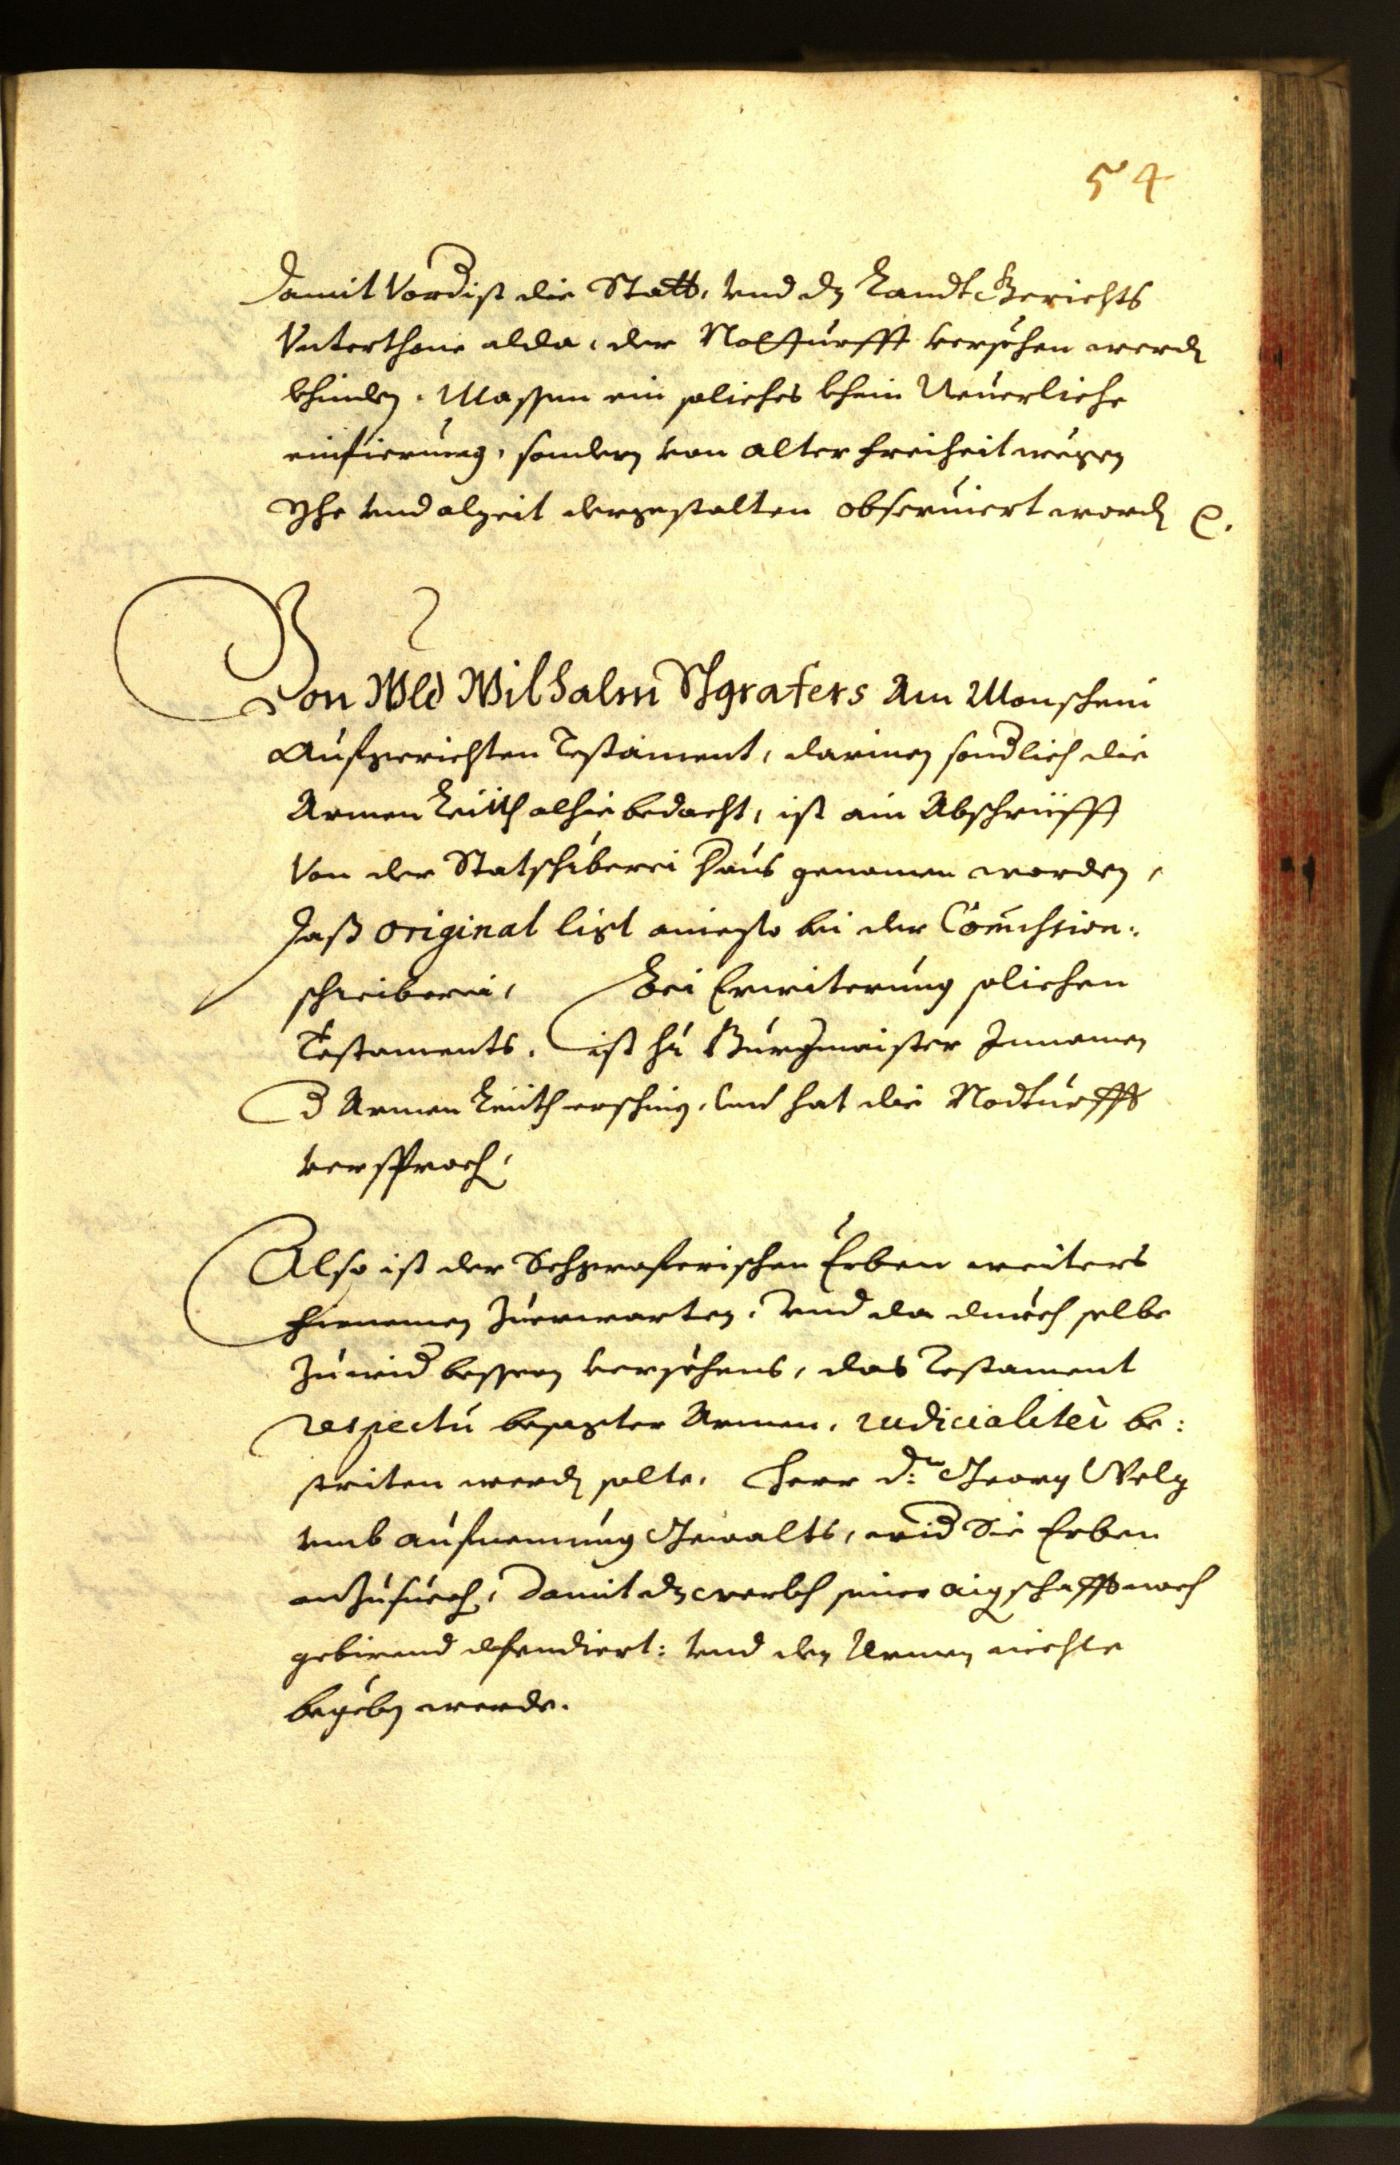 54
damit vordist die Statt, vnd dz Landt Gerichts
Vnterthone alda, der Notturfft versechen werdn
khinden. Massen ein soliches khein Neuerliche
einfierung, sondern von alter freiheit wegen
Yhe vnd alzeit dergestalten obseruiert wordn etc.
Von Wld Wilhalm Schgrafers Am Monschein
Aufgerichten Testament, darinen sondlich die
Armen Leüth alhie bedacht, ist ain Abschrüfft
Von der Statschreiberei haus genomen worden,
Daß original ligt aniezo bei der Comihsion-
schreiberei, Bei Erwiterung solichen
Testaments, ist hr Burgmaister Innamen
d Armen Leüth ersching, vnd hat die Nodturfft
versproch,
Also ist der Schgraferischen Erben weiters
firnemen zuerwarten, vnd da durch selbe
zuwid bessern versechens, das Testament
respectu besagter Armen, iudicialiter be:
striten werdn solte, Herr dr: Georg Welz
vmb aufnemung Gewalts, wid die Erben
anzusuech, damit dz werkh seiner aigschafft nach
gebirend defendiert: vnd den Armen nichts
begeben werde.